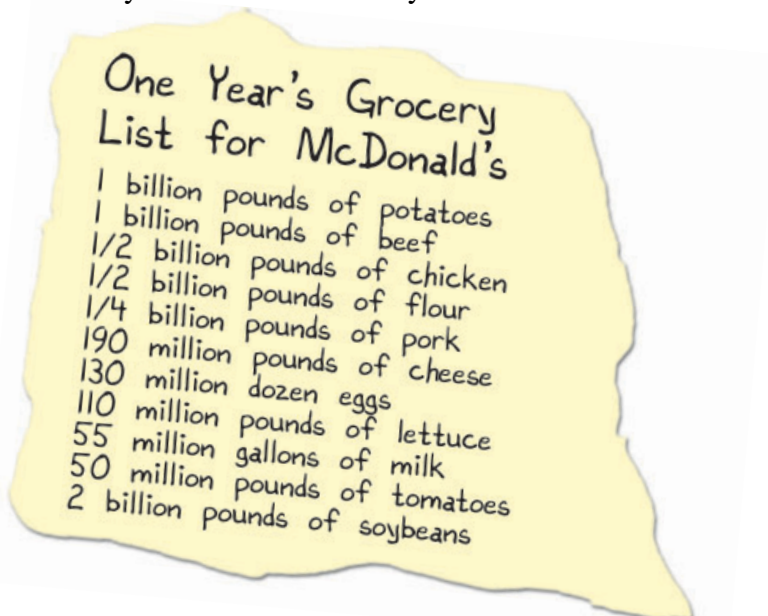 One Year's Grocery
List for McDonald's
1 billion pounds of potatoes
1 billion pounds of beef
1/2 billion pounds of chicken
1/2 billion pounds of flour
1/4 billion pounds of pork
190 million pounds of cheese
130 million dozen eggs
110 million pounds of lettuce
55 million gallons of milk
50 million pounds of tomatoes
2 billion pounds of soybeans